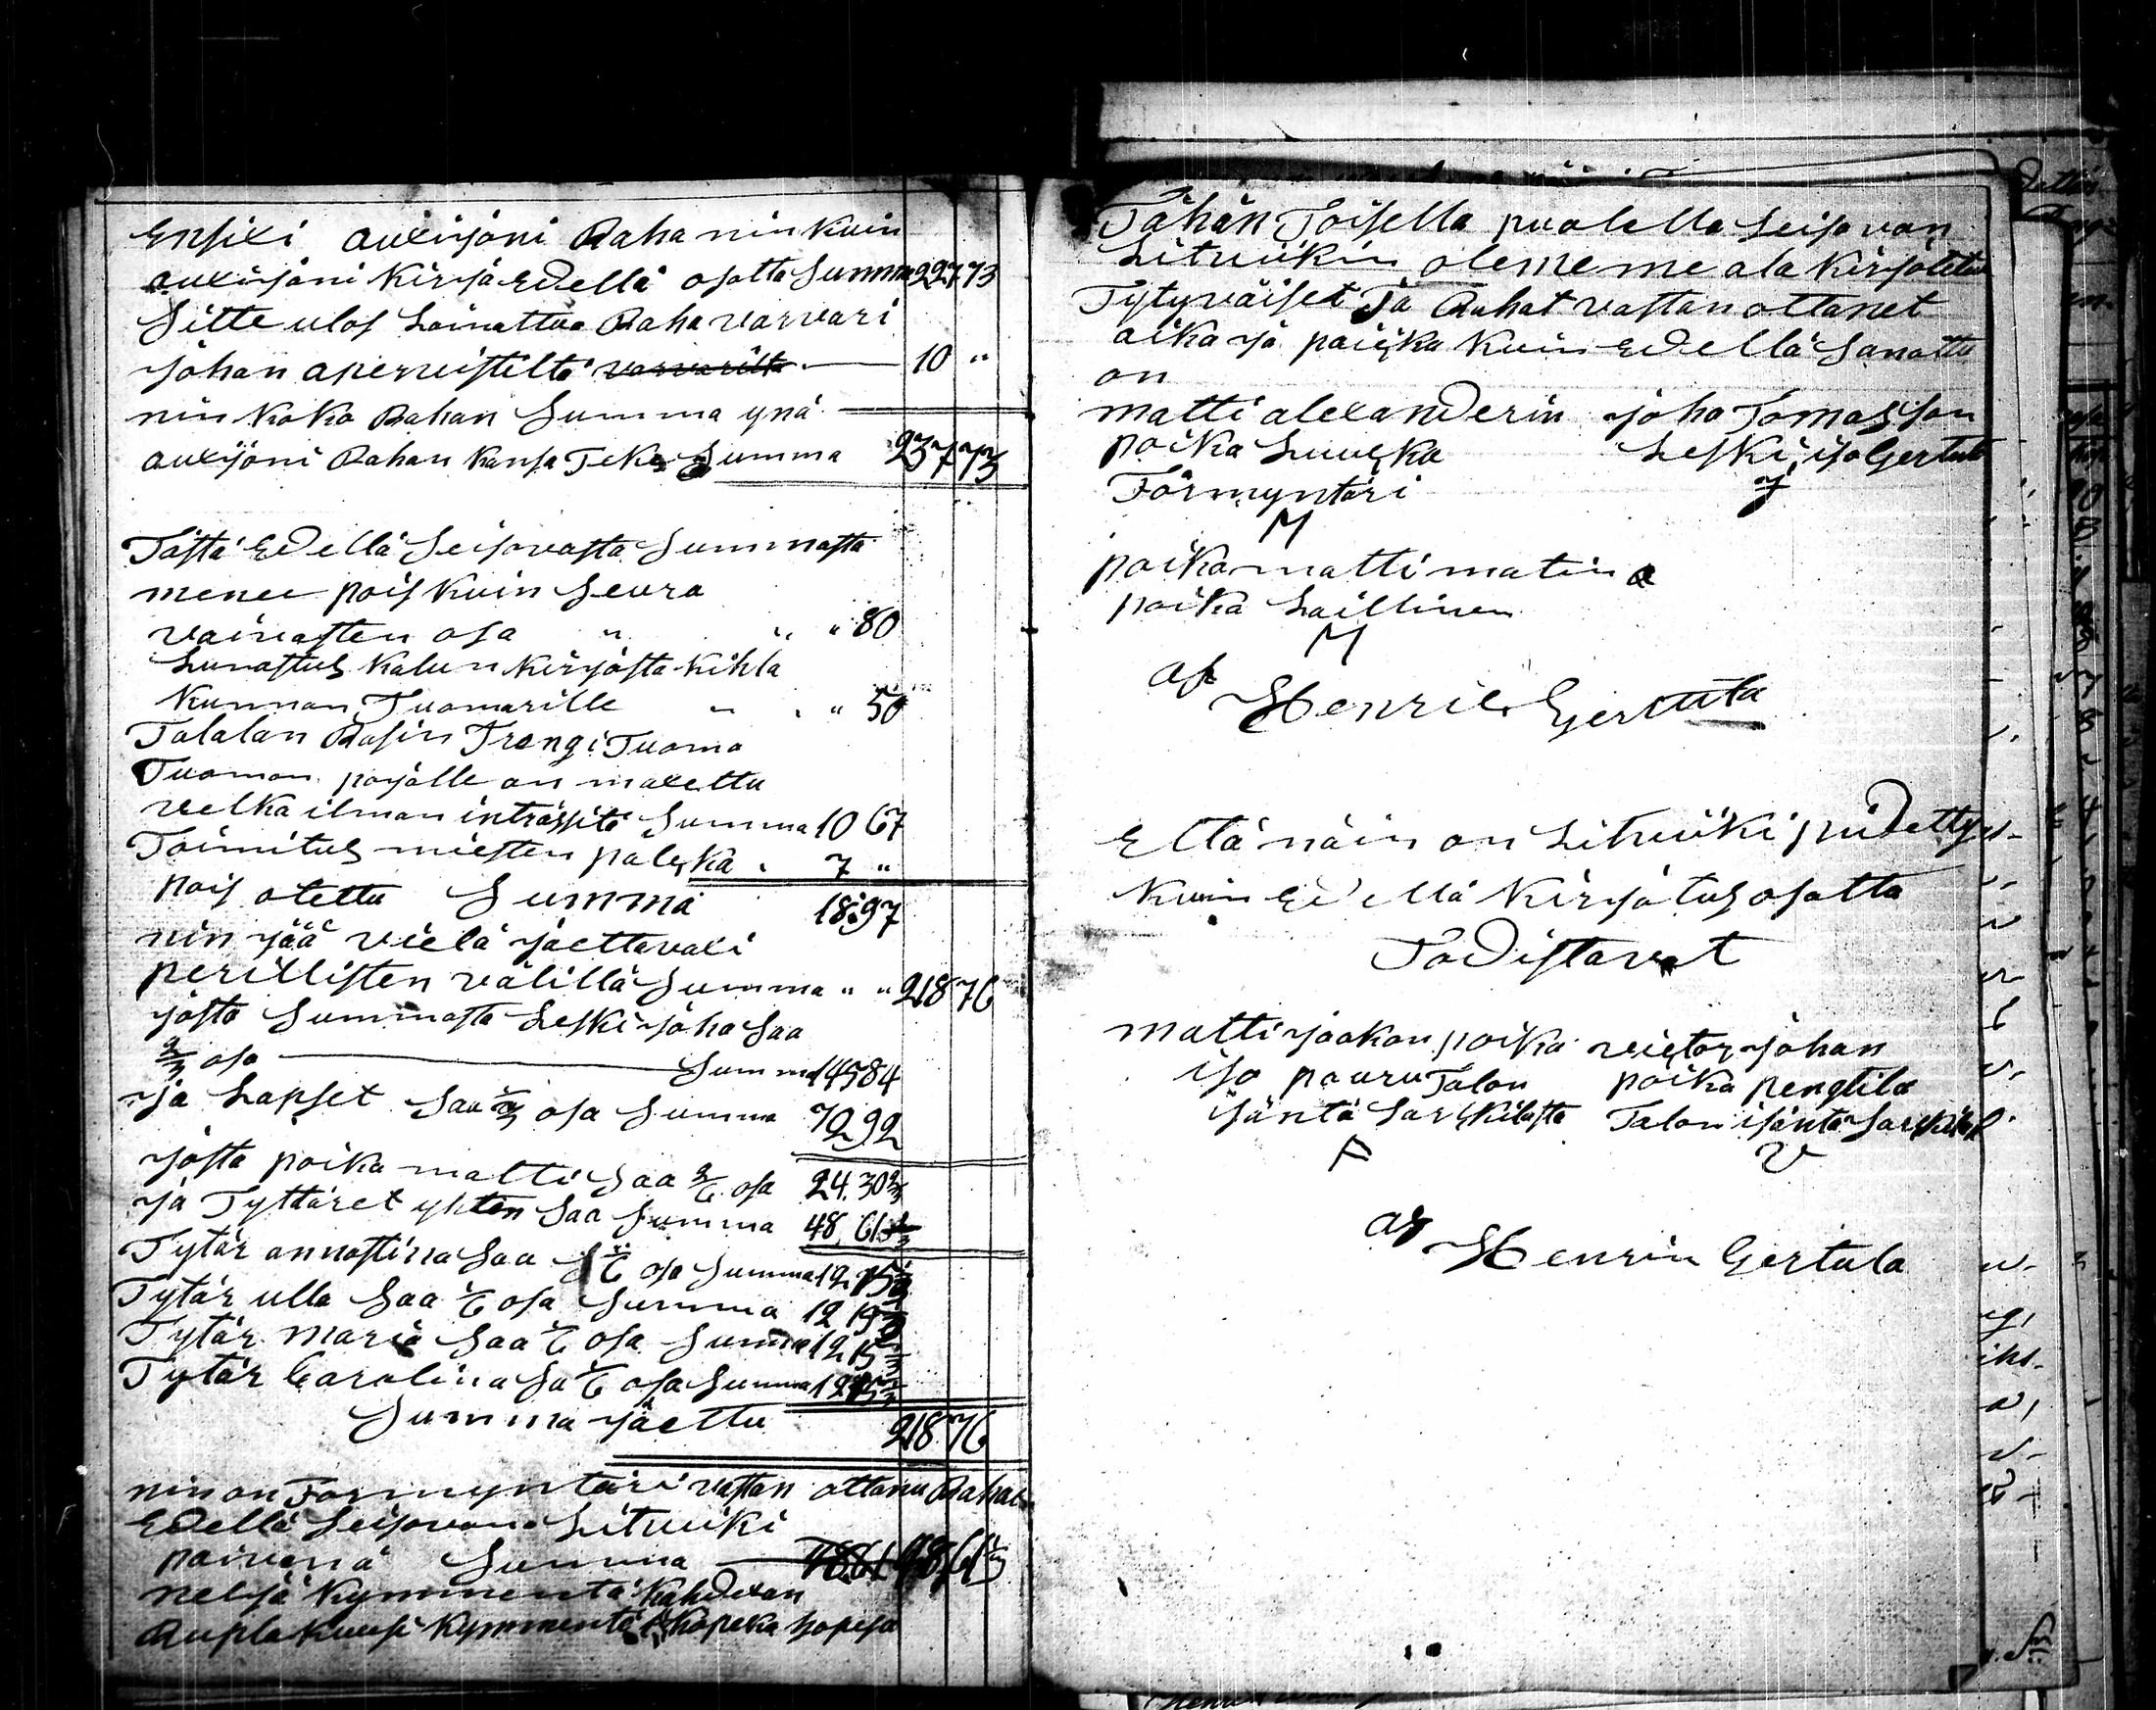 Ensixi auxijoni Raha nin kuin
auxijoni kirja Edellä osotta Summa 227 73
Sitte ulos Lainattua Raha varvari
johan apenistiltä varvarilta 10 "
nin koko Rahan Summa ynä
auxijoni Rahan kansa Teke Summa 237 73
Tästä Edellä Seisovasta Summasta
menee pois kuin Seura
vaivasten osa " " " 80
Lunastus kalun kirjosta kihla
kunnan Tuomarille " " " 50
Talalan Rasin Trengi Tuoma
Tuoman pojalle on maxettu
velka ilman inträssitä Summa 10 67
Toimitus miesten palcka . 7 "
pois otettu Summa 18:97
nin jää vielä jaettavaxi
perillisten välillä Summa " " 218 76
josta Summasta Leski joha Saa
2/3 osa Summa 145 84
ja Lapset Saa 1/3 osa Summa 72 92
josta poika matti Saa 2/6 osa 24.30 2/3
ja Tyttäret yhten Saa Summa 48, 61 1/3
Tytär annastina Saa 1/6 osa Summa 12 15 1/3
Tytär ulla Saa 1/6 osa Summa 12 15 1/3
Tytär maria Saa 1/6 osa Summa 12 15 1/3
Tytär Carolina Sa 1/6 osa Summa 12 15 1/3
Summa jaettu 218 76
nin on Formyntäri vastan ottanu Rahat
Edellä Seisovana Litviiki
päivänä Summa 4861 48,61 1/3
neljä kymmentä kahdexan
Rupla kuusi kymmentä 1 kopeka hopeja
Tähän Toisella puolella Seisovan
Litviikin olemme me ala kirjoitetut
Tytyväiset Ja Rahat vastan ottanet
aika ja paicka kuin Edellä Sanottu
on
matti alexanderin joha Tomasson
poika Luucka Leski iso Gertula
Förmyntäri
M
poika matti matin
poika Laillinen
M
af
Henric Gertula
Että näin on Litviiki pidettyx
kuin Edellä kirjotus osotta
Todistavat
matti jaakon poika victor johan
iso pouru Talon poika pengtila
isäntä Sarckilasta Talon isäntä Sarckilast
A V
af
Henrin Gertula